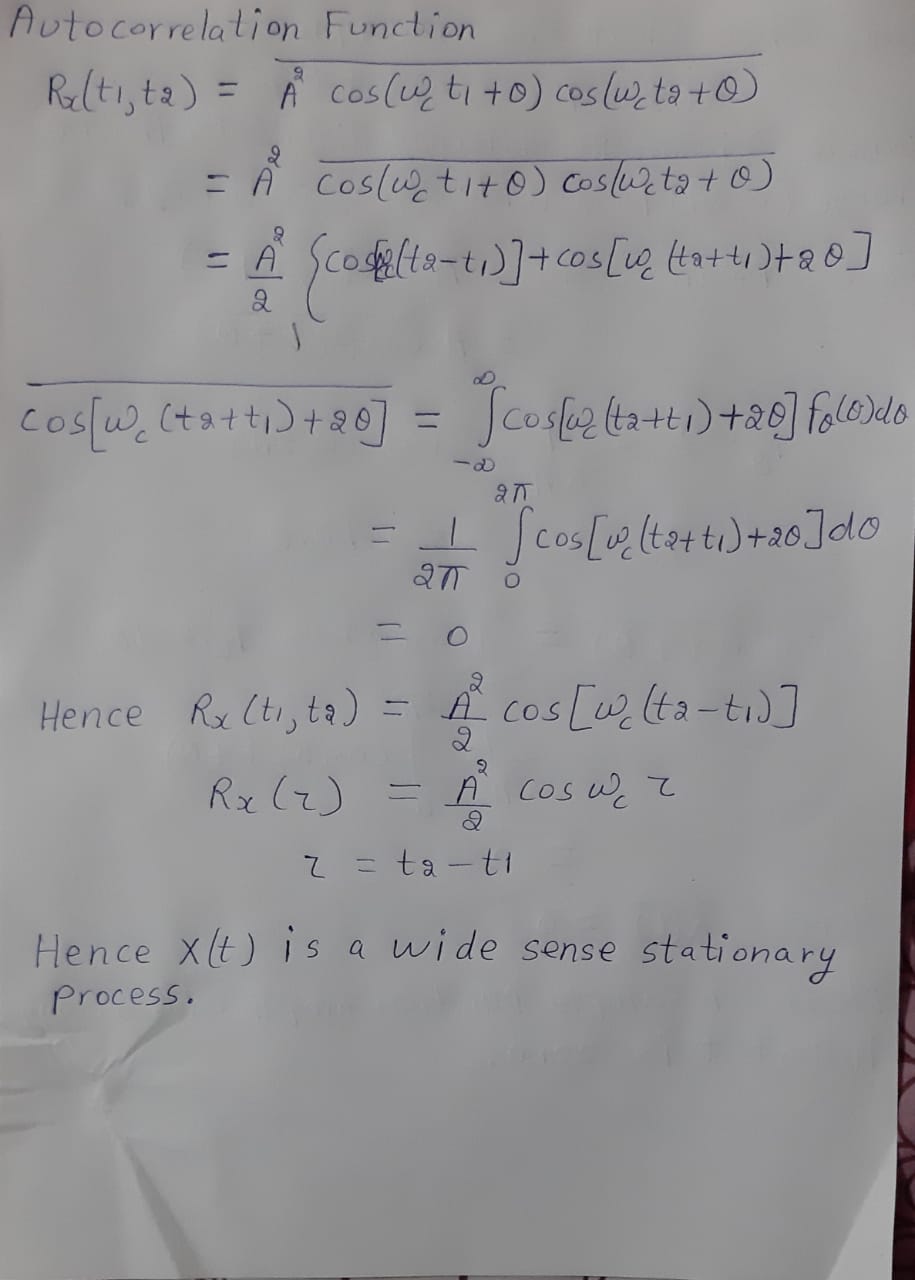 Autocorrelation Function
Rx(t1,t2) = A² cos(ωc t1+θ) cos(ωc t2+θ)
= A² cos(ωc t1+θ) cos(ωc t2+θ)
= A²/2 {cos[(t2-t1)]+cos[ωc (t2+t1)+2θ]
cos[ωc (t2+t1)+2θ] = ∫_{-∞}^{∞} cos[ωc (t2+t1)+2θ] fθ(θ)dθ
= 1/2π ∫_{0}^{2π} cos[ωc (t2+t1)+2θ]dθ
= 0
Hence Rx (t1,t2) = A²/2 cos[ωc (t2-t1)]
Rx (τ) = A²/2 cos ωc τ
τ = t2-t1
Hence x(t) is a wide sense stationary
process.